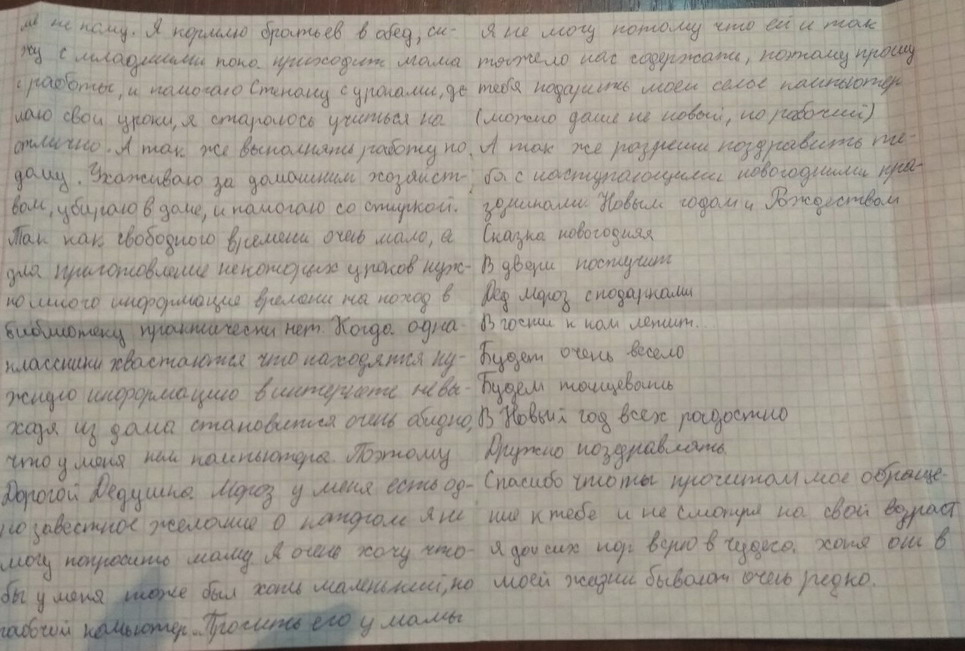 не кому. Я кормлю братьев в обед, си-
жу с младшими пока приходит мама
с работы, и помогаю Степану с уроками, де
лаю свои уроки, я стараюсь учиться на
отлично. А так же выполнять работу по
дому. Ухаживаю за домашним хозяист-
вом, убираю в доме, и помогаю со стиркой.
Так как свободного времени очень мало, а
для приготовление некоторых уроков нуж-
но много информацие времени на поход в
библиотеку практически нет. Когда одна-
класники хвастаются что находятся ну-
жную информацию в интернете не вы-
ходя из дома становится очень обидно,
что у меня нет компьютера. Поэтому
Дорогой Дедушка Мороз у меня есть од-
но заветное желание о катором я не
могу попросить маму. Я очень хочу что-
бы у меня тоже был хоть маленький, но
рабочий компютер. Просить его у мамы
Я не могу потому что ей и так
тяжело нас содержать, поэтому прошу
тебя подарить моей семье компьютер
(можно даже не новый, но рабочий)
А так же разреши поздравить те-
бя с наступающими новогодними праз-
дниками Новым годом и Рождеством
Сказка новогодняя
В двери постучит
Дед Мороз с подарками
В гости к нам летит.
Будет очень весело
Будем танцевать
В Новый год всех радостно
Дружно поздравлять.
Спасибо что ты прочитал мое обраще-
ние к тебе и не смотря на свой возраст
я до сих пор верю в чудеса. хотя они в
моей жизни бывают очень редко.